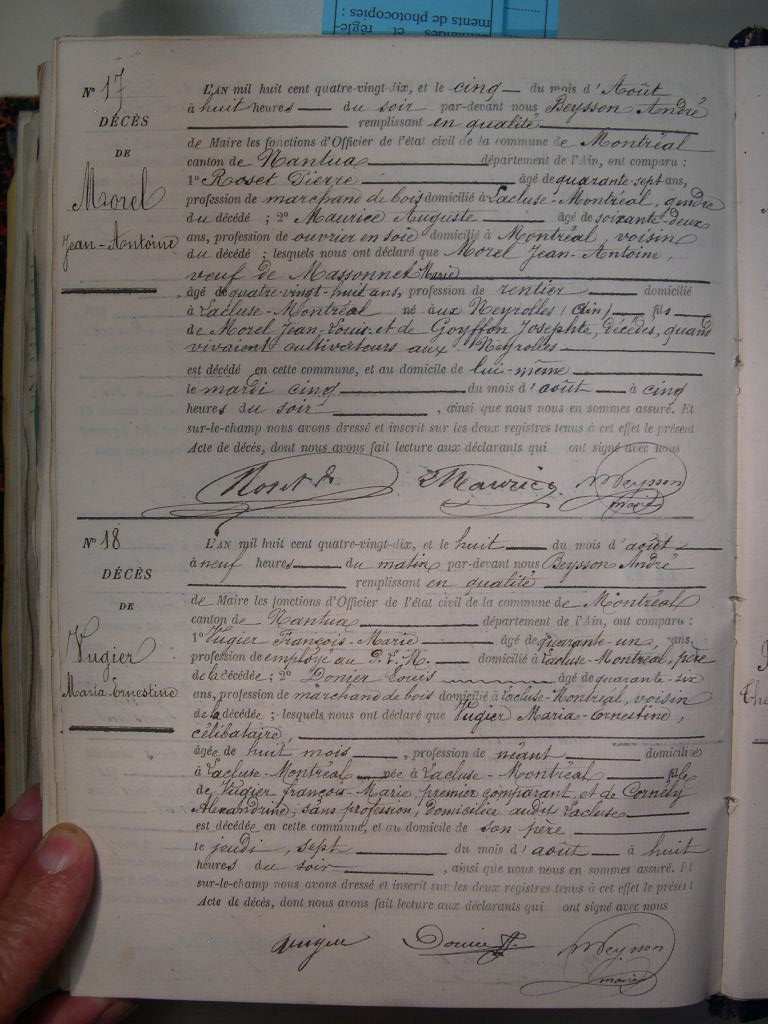 ments de photocopies :
et régle-
N° 17
DÉCÈS
DE
Morel
Jean-Antoine
L'AN mil huit cent quatre-vingt-dix, et le cinq du mois d'Août
à huit heures du soir par-devant nous Beysson André
remplissant en qualité
de Maire les fonctions d'Officier de l'état civil de la commune de Montréal
canton de Nantua département de l'Ain, ont comparu :
1° Roset Pierre âgé de quarante-sept ans,
profession de marchand de bois domicilié à Lacluse-Montréal, gendre
du décédé ; 2° Maurice Auguste âgé de soixante-deux
ans, profession de ouvrier en soie domicilié à Montréal, voisin
du décédé ; lesquels nous ont déclaré que Morel Jean-Antoine,
veuf de Massonnet Marie
âgé de quatre-vingt-huit ans, profession de rentier domicilié
à Lacluse-Montréal né aux Neyrolles (Ain) fils
de Morel Jean-Louis et de Goyffon Josephte, décédés, quand
vivaient cultivateurs aux Neyrolles
est décédé en cette commune, et au domicile de lui-même
le mardi cinq du mois d'août à cinq
heures du soir , ainsi que nous nous en sommes assuré. Et
sur-le-champ nous avons dressé et inscrit sur les deux registres tenus à cet effet le présent
Acte de décès, dont nous avons fait lecture aux déclarants qui ont signé avec nous
Roset P. Maurice Beysson
maire
N° 18
DÉCÈS
DE
Vugier
Maria-Ernestine
L'AN mil huit cent quatre-vingt-dix, et le huit du mois d'août
à neuf heures du matin par-devant nous Beysson André
remplissant en qualité
de Maire les fonctions d'Officier de l'état civil de la commune de Montréal
canton de Nantua département de l'Ain, ont comparu :
1° Vugier François-Marie âgé de quarante-un ans,
profession de employé au P.L.M. domicilié à Lacluse-Montréal, père
de la décédée ; 2° Donier Louis âgé de quarante-six
ans, profession de marchand de bois domicilié à Lacluse-Montréal, voisin
de la décédée ; lesquels nous ont déclaré que Vugier Maria-Ernestine,
célibataire,
âgée de huit mois , profession de néant domiciliée
à Lacluse-Montréal née à Lacluse-Montréal fille
de Vugier françois-Marie, premier comparant et de Cornely
Alexandrine, sans profession, domiciliée audit Lacluse
est décédée en cette commune, et au domicile de son père
le jeudi, sept du mois d'août à huit
heures du soir , ainsi que nous nous en sommes assuré. Et
sur-le-champ nous avons dressé et inscrit sur les deux registres tenus à cet effet le présent
Acte de décès, dont nous avons fait lecture aux déclarants qui ont signé avec nous
Donier Beysson
maire